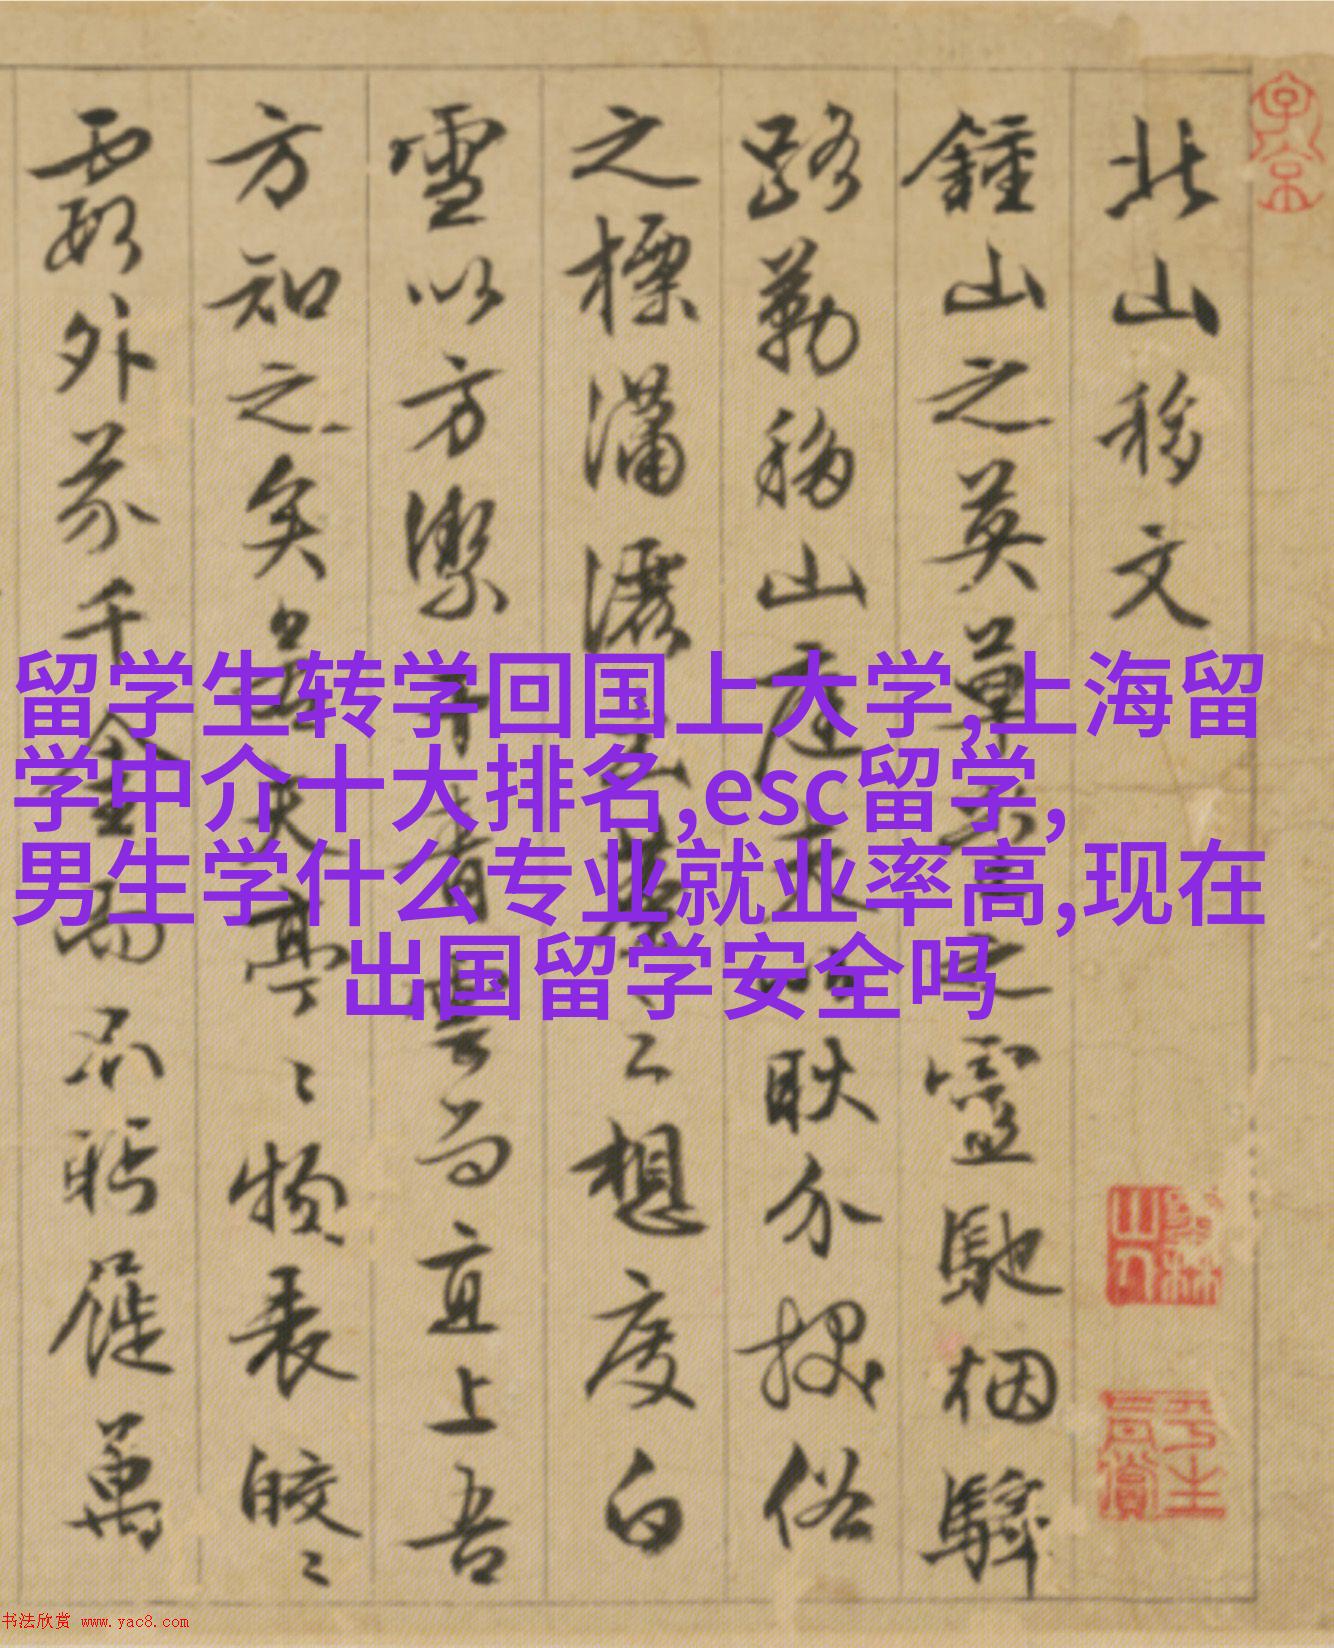 北山移文
鍾山之英草堂之靈馳烟驛
路勒移山庭夫以耿介拔俗
之標瀟灑出塵之想度白
雪以方潔干青雲而直上吾
方知之矣若其亭亭物表皎皎
霞外芥千金而不眄屣萬
留学生转学回国上大学,上海留
学中介十大排名,esc留学,
男生学什么专业就业率高,现在
出国留学安全吗
书法欣赏 www.yac8.com